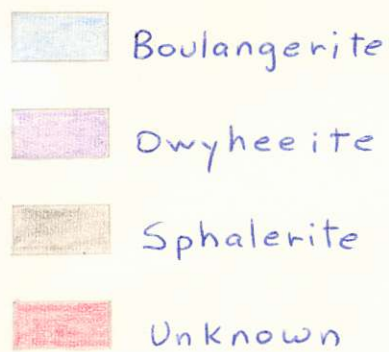 Boulangerite
Owyheeite
Sphalerite
Unknown